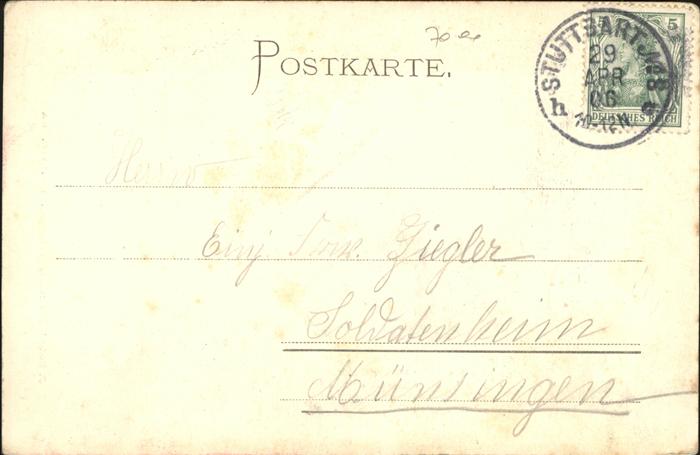 POSTKARTE.
STUTTGART
29
APR
06
10-12N.
h
5
5
DEUTSCHES REICH
Herrn
Einj. Ziegler
Soldatenheim
Münsingen